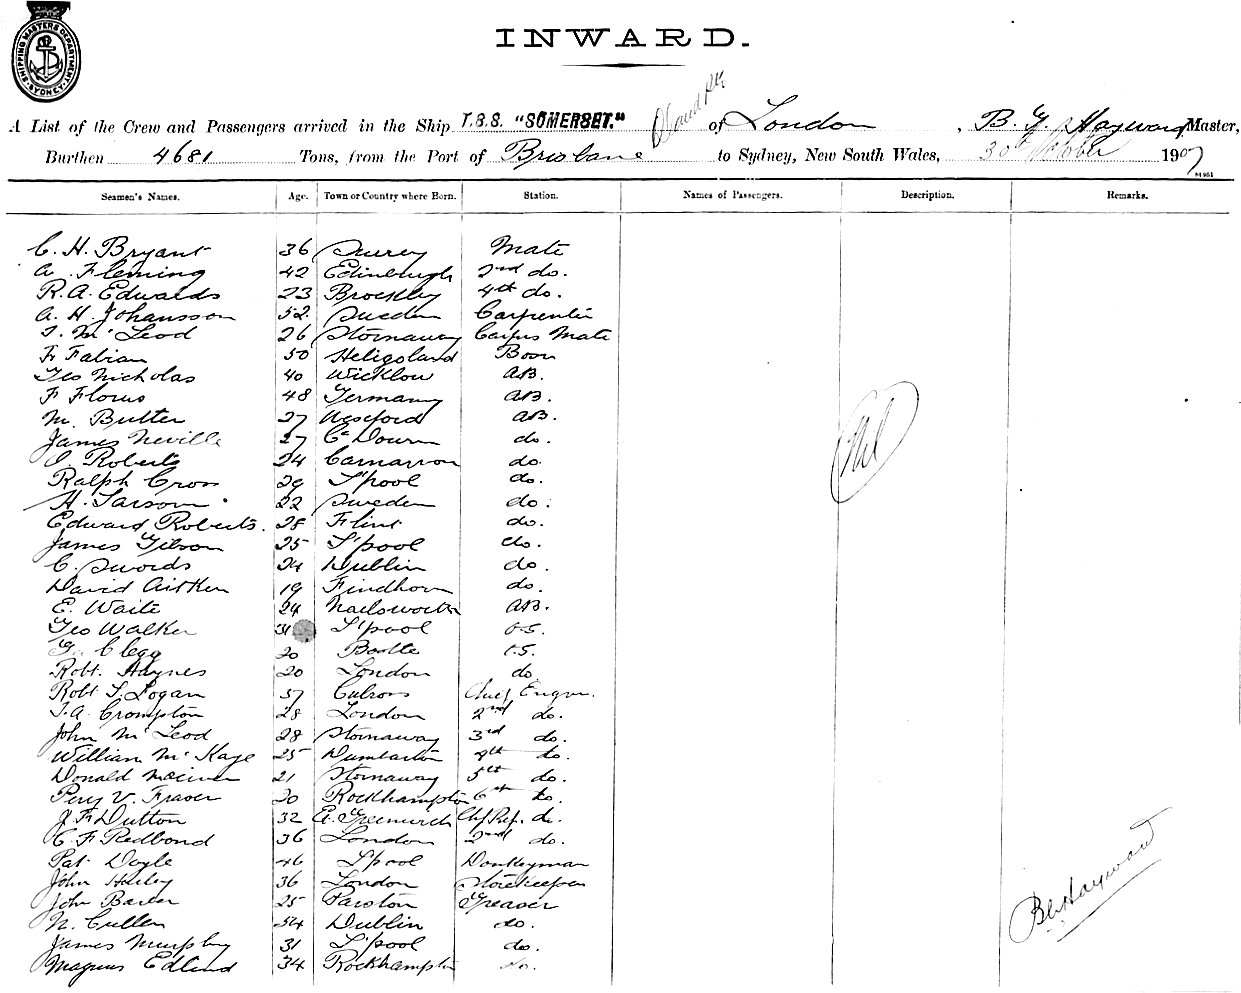 SHIPPING MASTERS DEPARTMENT. SYDNEY.
INWARD.
A List of the Crew and Passengers arrived in the Ship T.S.S. "SOMERSET." of London, B. G. Hayward Master,
Burthen 4681 Tons, from the Port of Brisbane to Sydney, New South Wales, 30th October 1907
Seamen's Names. Age. Town or Country where Born. Station. Names of Passengers. Description. Remarks.
C. H. Bryant 36 Surrey Mate
A. Fleming 42 Edinburgh 2nd do.
R. A. Edwards 23 Brockley 4th do.
A. H. Johansson 52 Sweden Carpenter
J. McLeod 26 Stornaway Carps Mate
F. Fabian 50 Heligoland Bosn
Geo Nicholas 40 Wicklow AB.
F Florus 48 Germany AB.
M. Butler 27 Wexford AB.
James Neville 27 Co Down do.
O. Roberts 24 Carnarvon do.
Ralph Cross 29 L'pool do.
H. Larsom 22 Sweden do.
Edward Roberts. 28 Flint do.
James Gibson 25 L'pool do.
C. Swords 24 Dublin do.
David Aitken 19 Findhorn do.
E. Waite 24 Nailsworth AB.
Geo Walker 31 L'pool O.S.
G. Clegg 20 Bootle O.S.
Robt. Haynes 20 London do
Robt. L. Logan 57 Culross Chief Engnr.
J. A. Crompton 28 London 2nd do.
John McLeod 28 Stornaway 3rd do.
William McKaye 25 Dumbarton 4th do.
Donald McIver 21 Stornaway 5th do.
Percy V. Fraser 20 Rockhampton 6th do.
J. F. Dutton 32 E. Greenwich Chf Ref. do.
C. F Redbond 36 London 2nd do.
Pat Doyle 46 L'pool Donkeyman
John Harley 36 London Storekeeper
John Baxter 25 Greaser
N. Cullen 54 Dublin do.
James Murphy 31 L'pool do.
Magnus Edlund 34 Rockhampton do.
Nil
B G Hayward